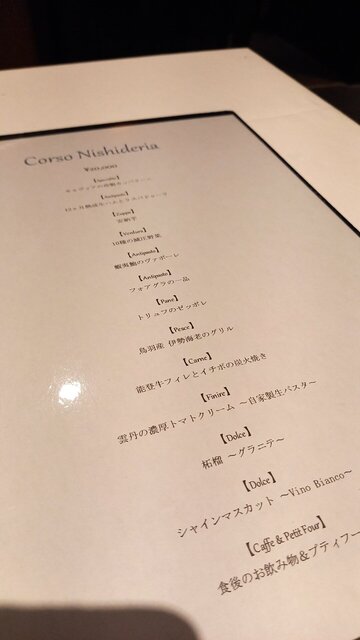 Corso Nishideria
¥20,000
【Specialita】
【Antipasto】
【Zuppa】
安納芋
【Verdura】
10種の減圧野菜
【Antipasto】
蝦夷鮑のヴァポーレ
【Antipasto】
フォアグラの一品
【Pane】
トリュフのゼッポレ
【Pesce】
鳥羽産 伊勢海老のグリル
【Carne】
能登牛フィレとイチボの炭火焼き
【Finire】
雲丹の濃厚トマトクリーム ～自家製生パスタ～
【Dolce】
柘榴 ～グラニテ～
【Dolce】
シャインマスカット ～Vino Bianco～
【Caffe & Petit Four】
食後のお飲み物＆プティフー